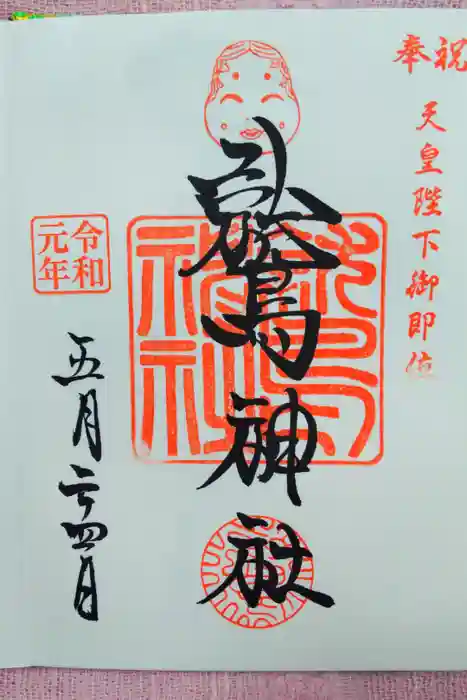 奉祝
天皇陛下御即位
鷲神社
鷲神社
令和
元年
五月二十四日